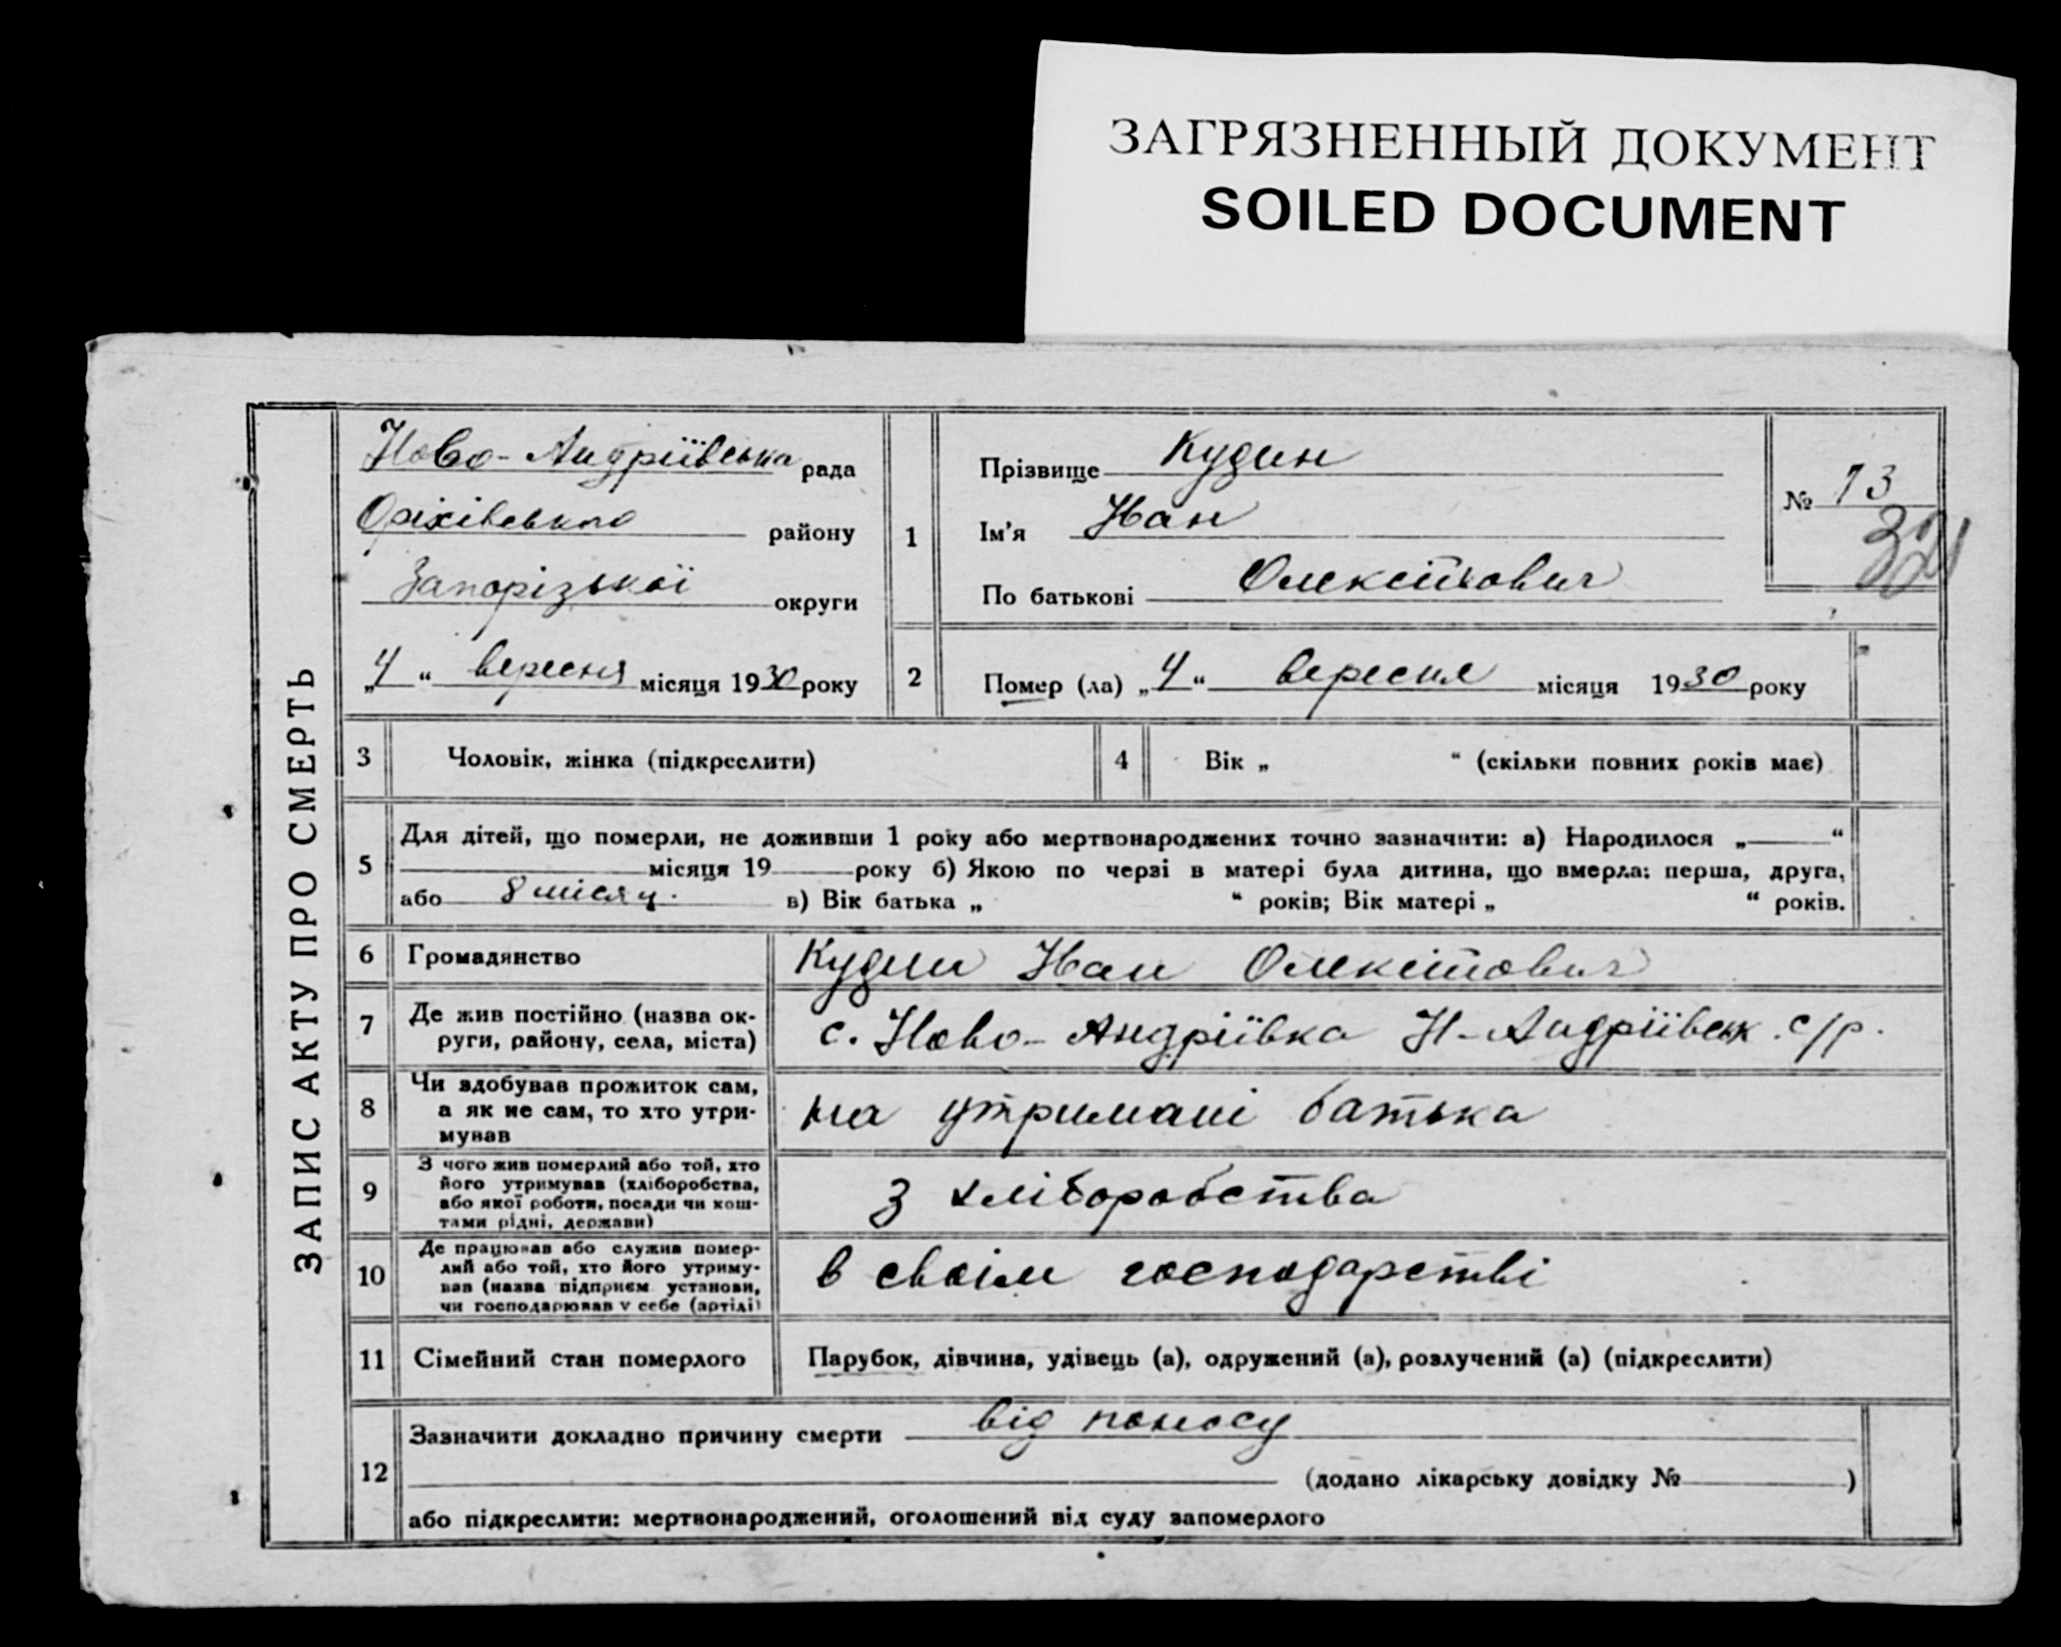 ЗАГРЯЗНЕННЫЙ ДОКУМЕНТ
SOILED DOCUMENT
ЗАПИС АКТУ ПРО СМЕРТЬ
Ново-Андріївська рада
Оріхівського району
Запорізької округи
„4“ вересня місяця 1930 року
1
Прізвище Кудин
Ім'я Иван
По батькові Олексійович
№ 73
2
Помер (ла) „4“ вересня місяця 1930 року
3 Чоловік, жінка (підкреслити)
4 Вік „ “ (скільки повних років має)
5
Для дітей, що померли, не доживши 1 року або мертвонароджених точно зазначити: а) Народилося „ “
місяця 19 року б) Якою по черзі в матері була дитина, що вмерла: перша, друга,
або 8 місяц. в) Вік батька „ “ років; Вік матері „ “ років.
6 Громадянство Кудин Иван Олексійович
7 Де жив постійно (назва ок-
руги, району, села, міста)
с. Ново-Андріївка Н-Андріївськ. с/р.
8 Чи здобував прожиток сам,
а як не сам, то хто утри-
мував
на утримані батька
9 З чого жив померлий або той, хто
його утримував (хліборобства,
або якої роботи, посади чи кош-
тами рідні, держави)
З хліборобства
10 Де працював або служив помер-
лий або той, хто його утриму-
вав (назва підприєм. установи,
чи господарював у себе (артілі)
в своїм господарстві
11 Сімейний стан померлого Парубок, дівчина, удівець (а), одружений (а), розлучений (а) (підкреслити)
12
Зазначити докладно причину смерти від поносу
(додано лікарську довідку № )
або підкреслити: мертвонароджений, оголошений від суду запомерлого